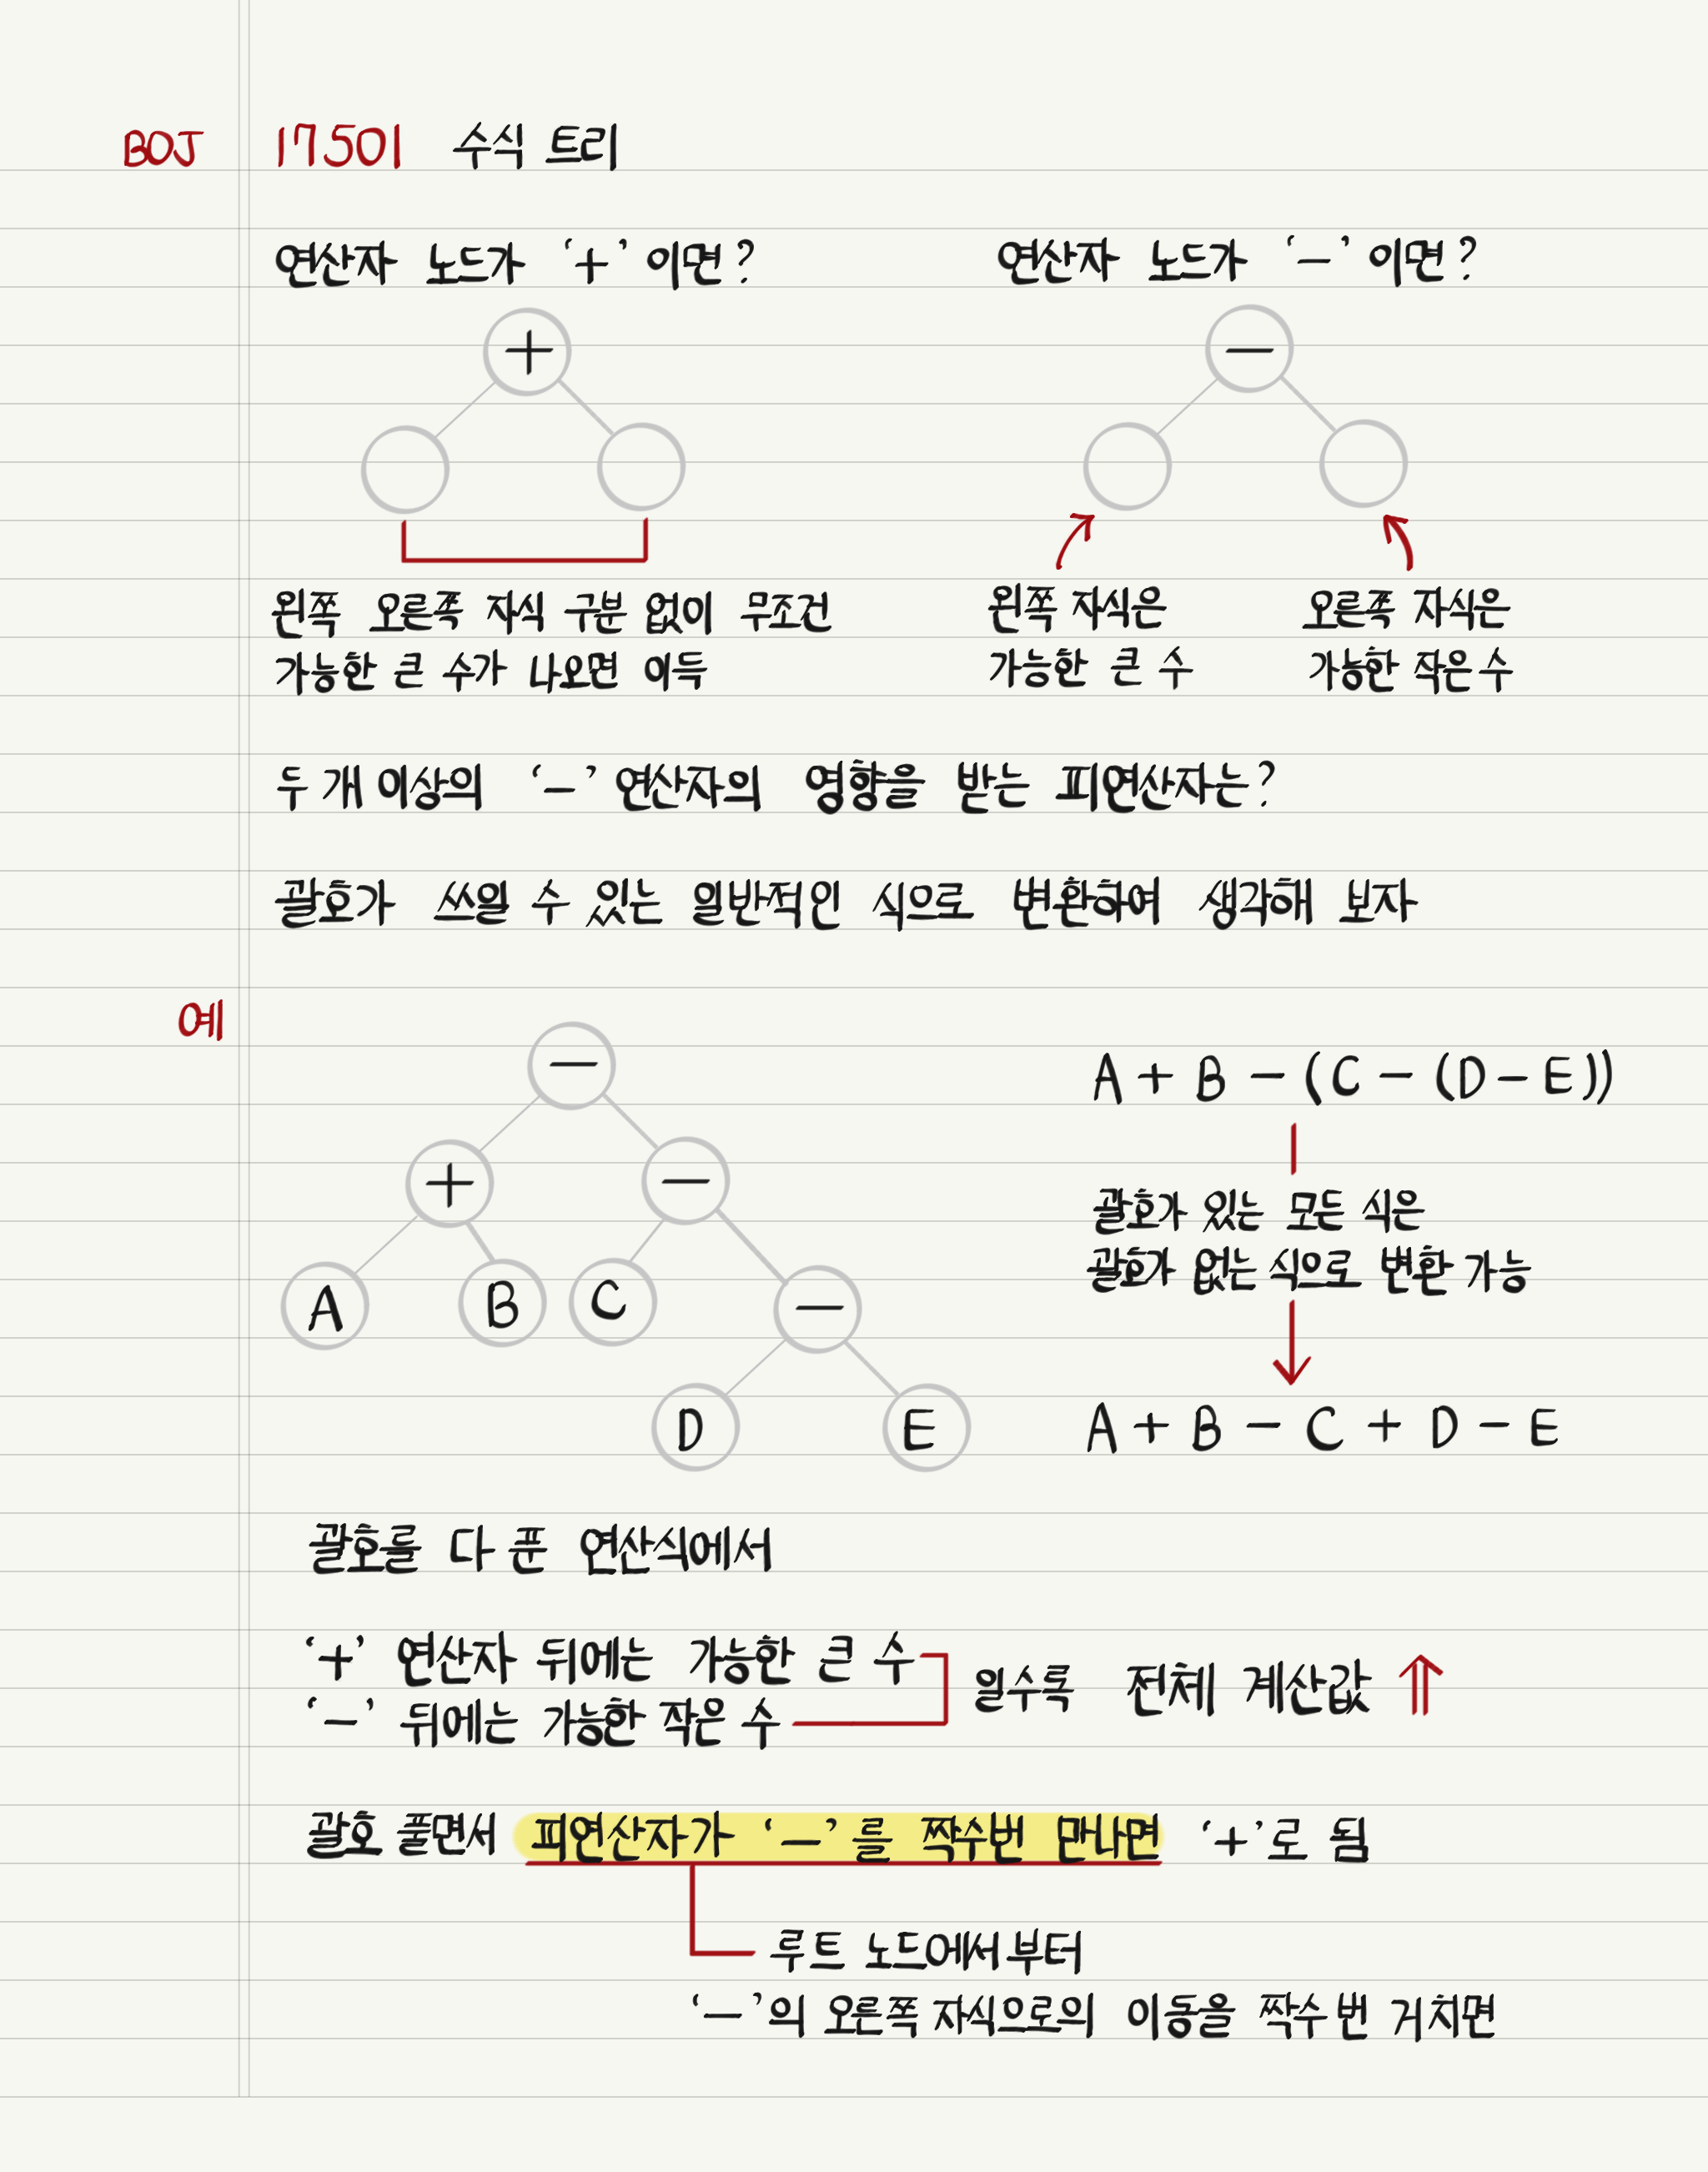 BOJ 17501 수식 트리
연산자 노드가 '+' 이면?
+
왼쪽 오른쪽 자식 구분 없이 무조건
가능한 큰 수가 나오면 이득
연산자 노드가 '-' 이면?
-
왼쪽 자식은
가능한 큰 수
오른쪽 자식은
가능한 작은 수
두 개 이상의 '-' 연산자의 영향을 받는 피연산자는?
괄호가 쓰일 수 있는 일반적인 식으로 변환하여 생각해 보자
예
-
+ -
A B C -
D E
A + B - (C - (D - E))
괄호가 있는 모든 식은
괄호가 없는 식으로 변환 가능
A + B - C + D - E
괄호를 다 푼 연산식에서
'+' 연산자 뒤에는 가능한 큰 수
'-' 뒤에는 가능한 작은 수
일수록 전체 계산값 ⇑
괄호 풀면서 피연산자가 '-'를 짝수번 만나면 '+'로 됨
루트 노드에서부터
'-'의 오른쪽 자식으로의 이동을 짝수 번 거치면